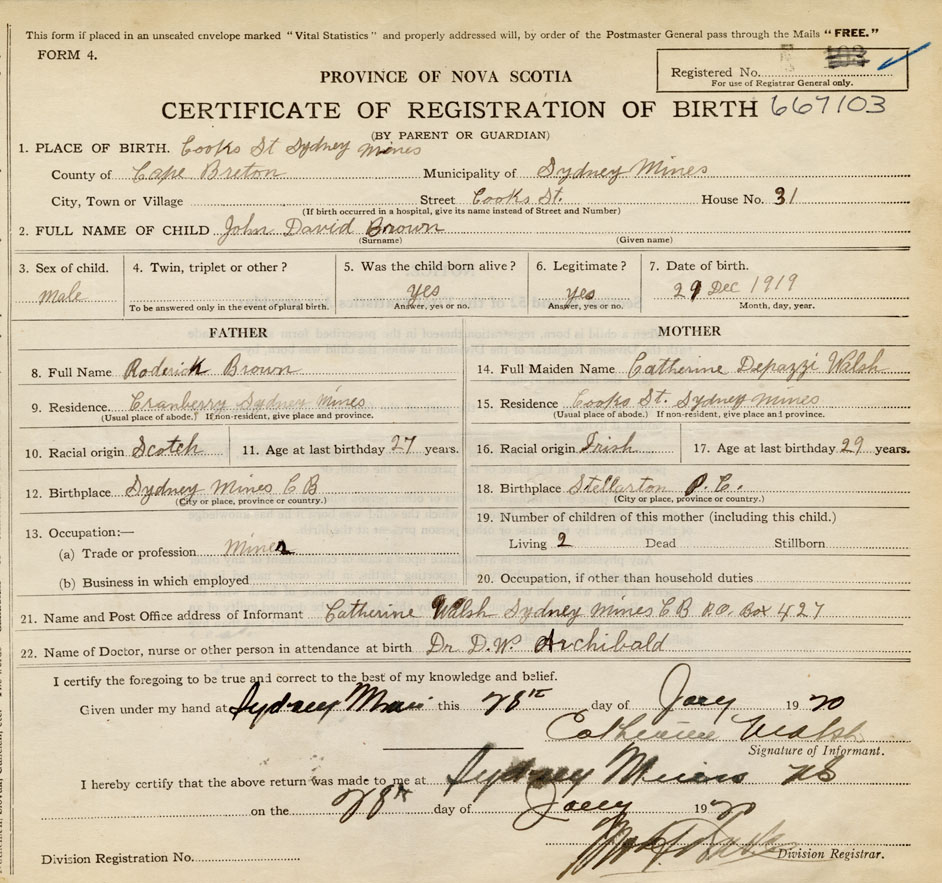 This form if placed in an unsealed envelope marked "Vital Statistics" and properly addressed will, by order of the Postmaster General pass through the Mails "FREE."
FORM 4.
Registered No.
For use of Registrar General only.
PROVINCE OF NOVA SCOTIA
CERTIFICATE OF REGISTRATION OF BIRTH 667103
(BY PARENT OR GUARDIAN)
1. PLACE OF BIRTH. Cooks St Sydney Mines
County of Cape Breton Municipality of Sydney Mines
City, Town or Village Street Cooks St. House No. 31
(If birth occurred in a hospital, give its name instead of Street and Number)
2. FULL NAME OF CHILD John David Brown
(Surname) (Given name)
3. Sex of child. 4. Twin, triplet or other? 5. Was the child born alive? 6. Legitimate? 7. Date of birth.
Male yes yes 29 Dec 1919
To be answered only in the event of plural birth. Answer, yes or no. Answer, yes or no. Month, day, year.
FATHER MOTHER
8. Full Name Roderick Brown 14. Full Maiden Name Catherine Depazzi Walsh
9. Residence. Cranberry Sydney Mines 15. Residence Cooks St. Sydney Mines
(Usual place of abode.) If non-resident, give place and province. (Usual place of abode.) If non-resident, give place and province.
10. Racial origin Scotch 11. Age at last birthday 27 years. 16. Racial origin Irish 17. Age at last birthday 29 years.
12. Birthplace Sydney Mines C B 18. Birthplace Stellerton P. C.
(City or place, province or country.) (City or place, province or country.)
13. Occupation:— 19. Number of children of this mother (including this child.)
(a) Trade or profession Miner Living 2 Dead Stillborn
(b) Business in which employed 20. Occupation, if other than household duties
21. Name and Post Office address of Informant Catherine Walsh Sydney Mines C B P.O. Box 427
22. Name of Doctor, nurse or other person in attendance at birth Dr. D.W. Archibald
I certify the foregoing to be true and correct to the best of my knowledge and belief.
Given under my hand at Sydney Mines this 28th day of Jany 1920
Catherine Walsh
Signature of Informant.
I hereby certify that the above return was made to me at Sydney Mines NS
on the 28th day of Jany 1920
Division Registration No. Division Registrar.